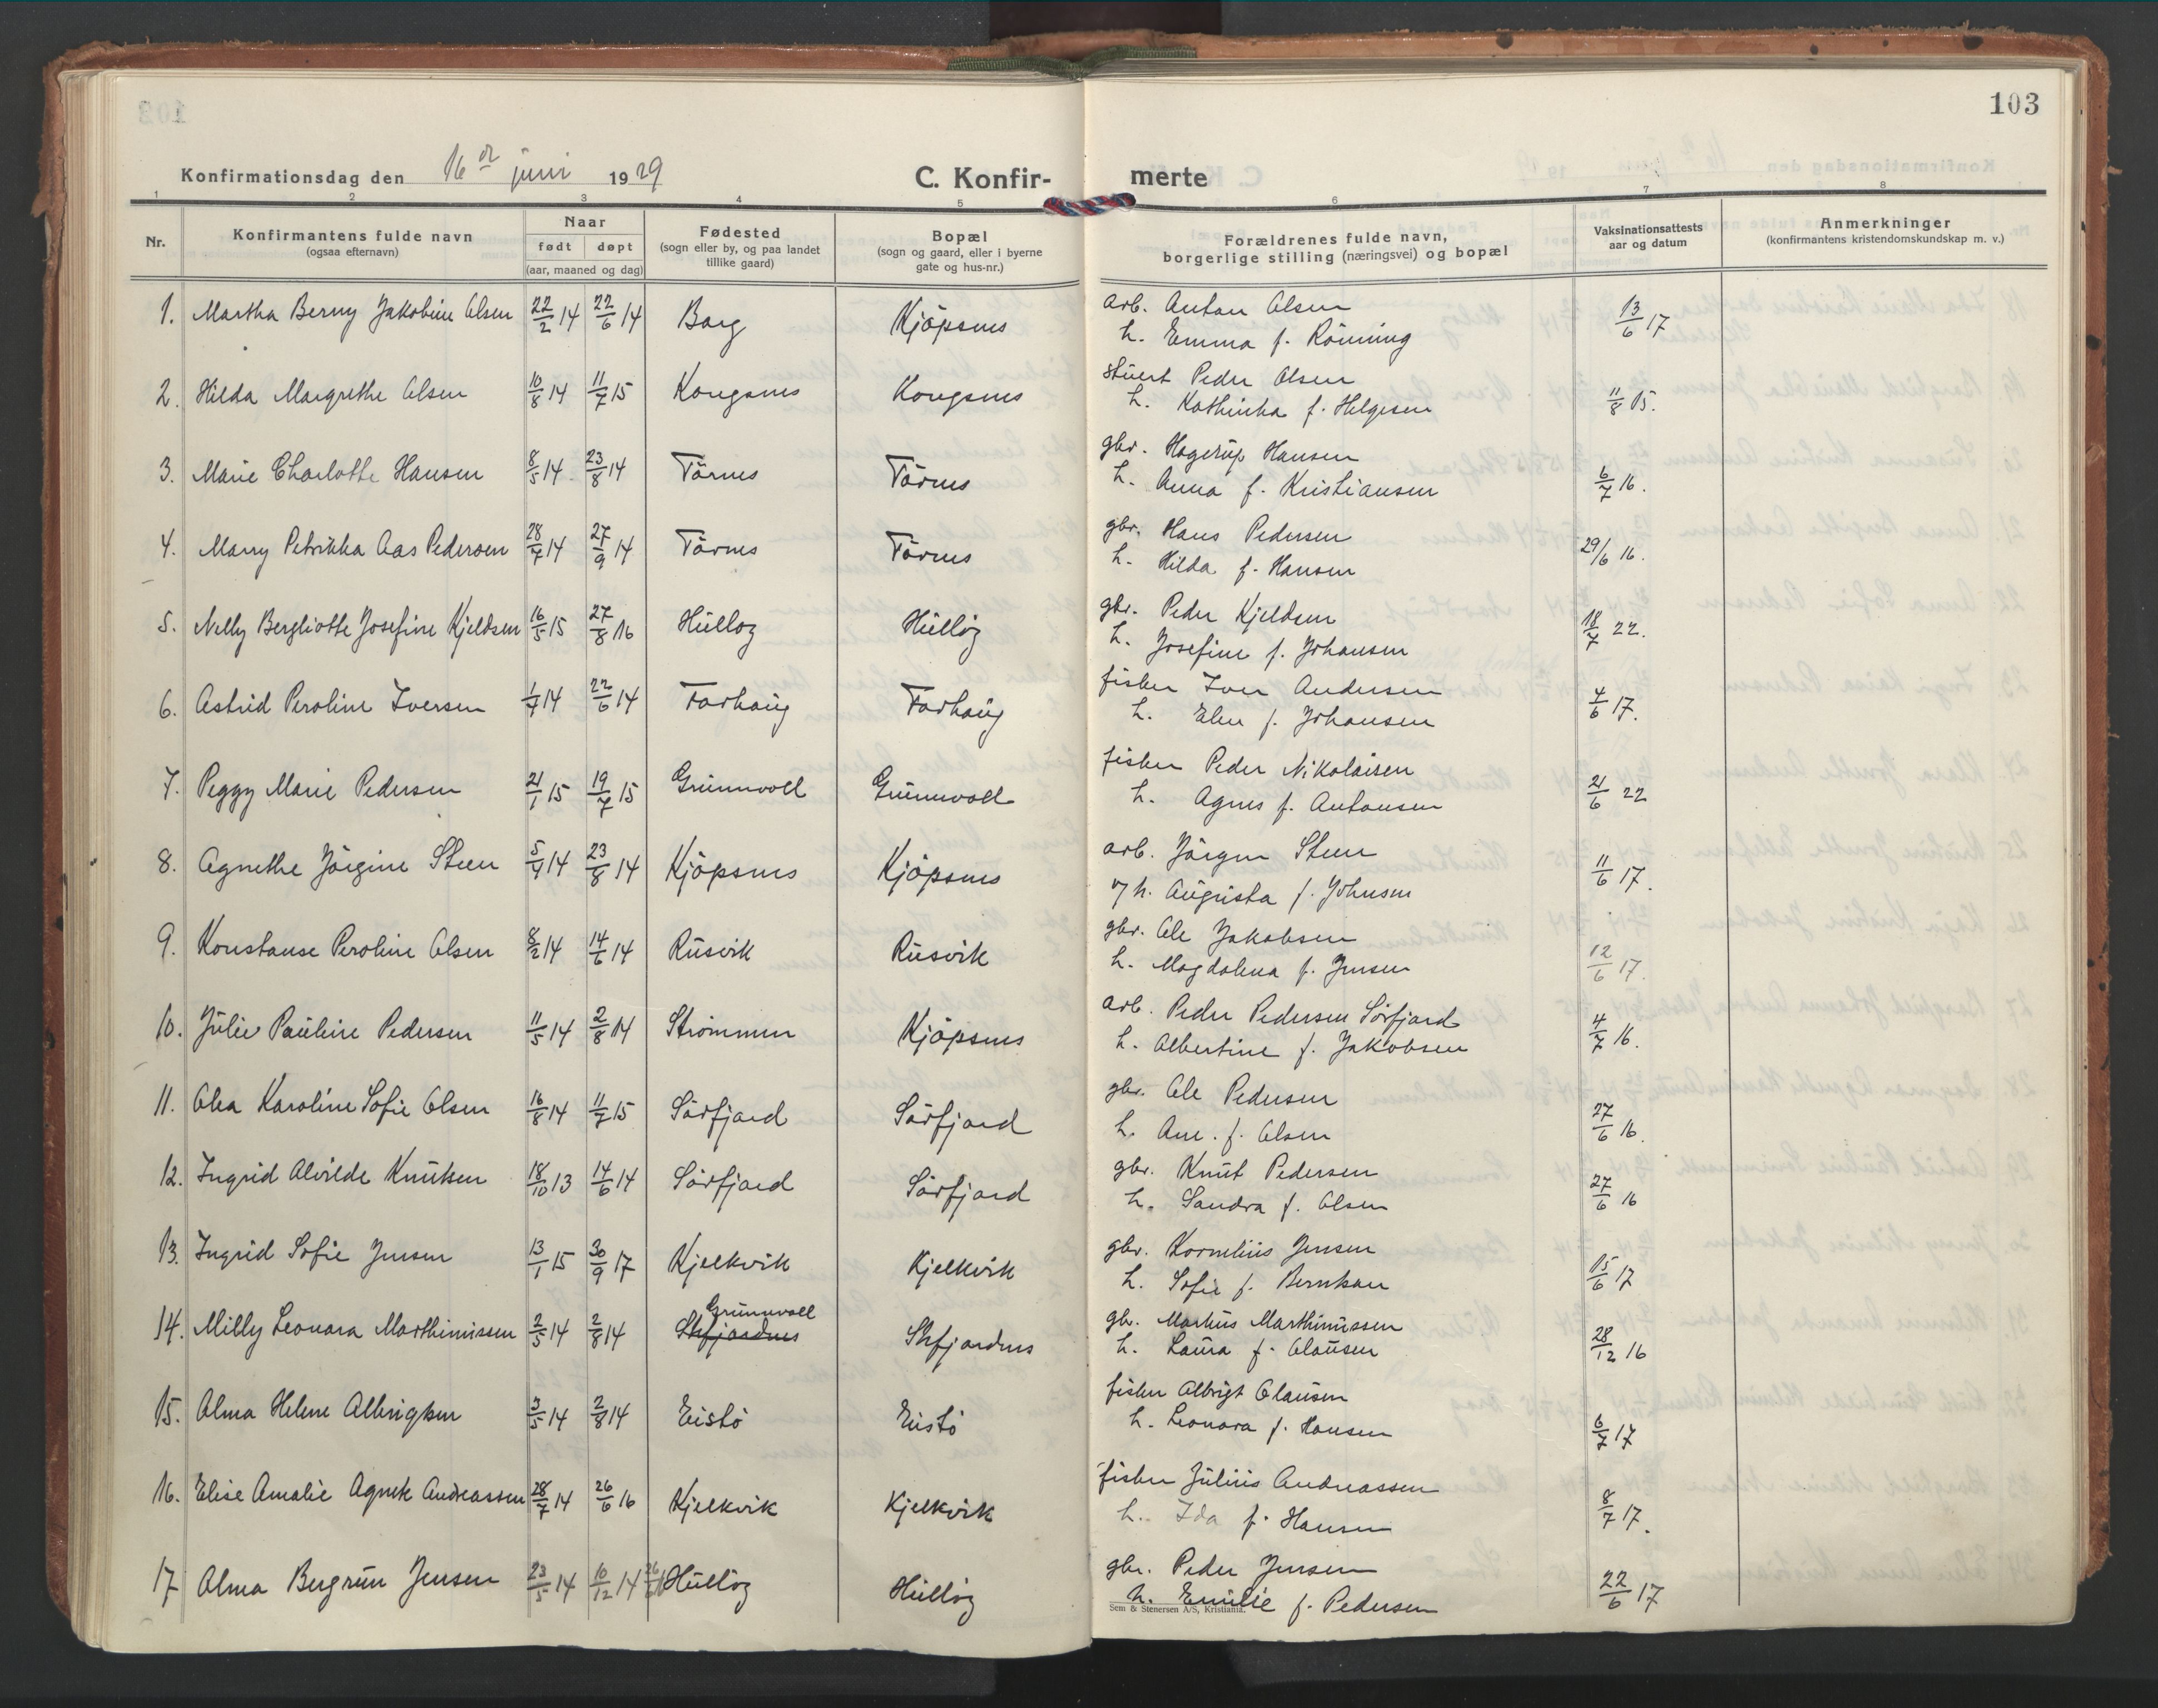 103
Konfirmationsdag den 16de juni 1929
C. Konfir- merte
1 2 3 4 5 6 7 8
Nr. Konfirmantens fulde navn (ogsaa efternavn) Naar født døpt (aar, maaned og dag) Fødested (sogn eller by, og paa landet tillike gaard) Bopæl (sogn og gaard, eller i byerne gate og hus-nr.) Forældrenes fulde navn, borgerlige stilling (næringsvei) og bopæl Vaksinationsattests aar og datum Anmerkninger (konfirmantens kristendomskundskap m. v.)
1. Martha Berny Jakobine Olsen 22/2 14 22/6 14 Borg Kjöpsnes arb. Anton Olsen 13/6 17
h. Emma f. Rönning
2. Hilda Margrethe Olsen 10/8 14 11/7 15 Kongsnes Kongsnes stuert Peder Olsen 11/8 15.
h. Kathinka f. Helgesen
3. Marie Charlotte Hansen 8/5 14 23/8 14 Törnes Törnes gbr. Hagerup Hansen 6/7 16.
h. Anna f. Kristiansen
4. Marry Petrikka Aas Pedersen 28/7 14 27/9 14 Törnes Törnes gbr. Hans Pedersen 29/6 16.
h. Hilda f. Hansen
5. Nelly Bergliotte Josefine Kjeldsen 16/5 15 27/8 16 Hulløy Hulløy gbr. Peder Kjeldsen 18/7 22.
h. Josefine f. Johansen
6. Astrid Peroline Iversen 1/7 14 22/6 14 Forhaug Forhaug fisker Iver Andersen 4/6 17.
h. Elen f. Johansen
7. Peggy Marie Pedersen 21/1 15 19/7 15 Grunnvoll Grunnvoll fisker Peder Nikolaisen 21/6 22
h. Agnes f. Antonsen
8. Agnethe Jörgine Steen 5/4 14 23/8 14 Kjöpsnes Kjöpsnes arb. Jörgen Steen 11/6 17.
o/h. Augusta f. Johnsen
9. Konstanse Peroline Olsen 8/2 14 14/6 14 Rusvik Rusvik gbr. Ole Jakobsen 12/6 17.
h. Magdalena f. Jensen
10. Julie Pauline Pedersen 11/5 14 2/8 14 Strömmen Kjöpsnes arb. Peder Pedersen Sörfjord 4/7 16.
h. Albertine f. Jakobsen
11. Olea Karoline Sofie Olsen 16/8 14 11/7 15 Sörfjord Sörfjord gbr. Ole Pedersen 27/6 16.
h. Ane. f. Olsen
12. Ingrid Alvilde Knutsen 18/10 13 14/6 14 Sörfjord Sörfjord gbr. Knut Pedersen 27/6 16
h. Sandra f. Olsen
13. Ingrid Sofie Jensen 13/1 15 30/9 17 Kjelkvik Kjelkvik gbr. Kornelius Jensen 15/6 17
h. Sofie f. Berntsen
Grunnvoll
14. Milly Leonara Marthinussen 2/5 14 2/8 14 Skfjordnes Skfjordnes gbr. Markus Marthinussen 28/12 16
h. Laura f. Olausen
15. Alma Helene Albrigtsen 3/5 14 2/8 14 Eistö Eistö fisker Albrigt Olausen 6/7 17
h. Leonara f. Hansen
16. Elise Amalie Agnete Andreassen 28/7 14 26/6 16 Kjelkvik Kjelkvik fisker Julius Andreassen 8/7 17.
h. Ida f. Hansen
17 Alma Bergrun Jensen 23/5 14 10/12 14 Hulløy Hulløy gbr. Peder Jensen 22/6 17
h. Emilie f. Pedersen
Sem & Stenersen A/S, Kristiania.